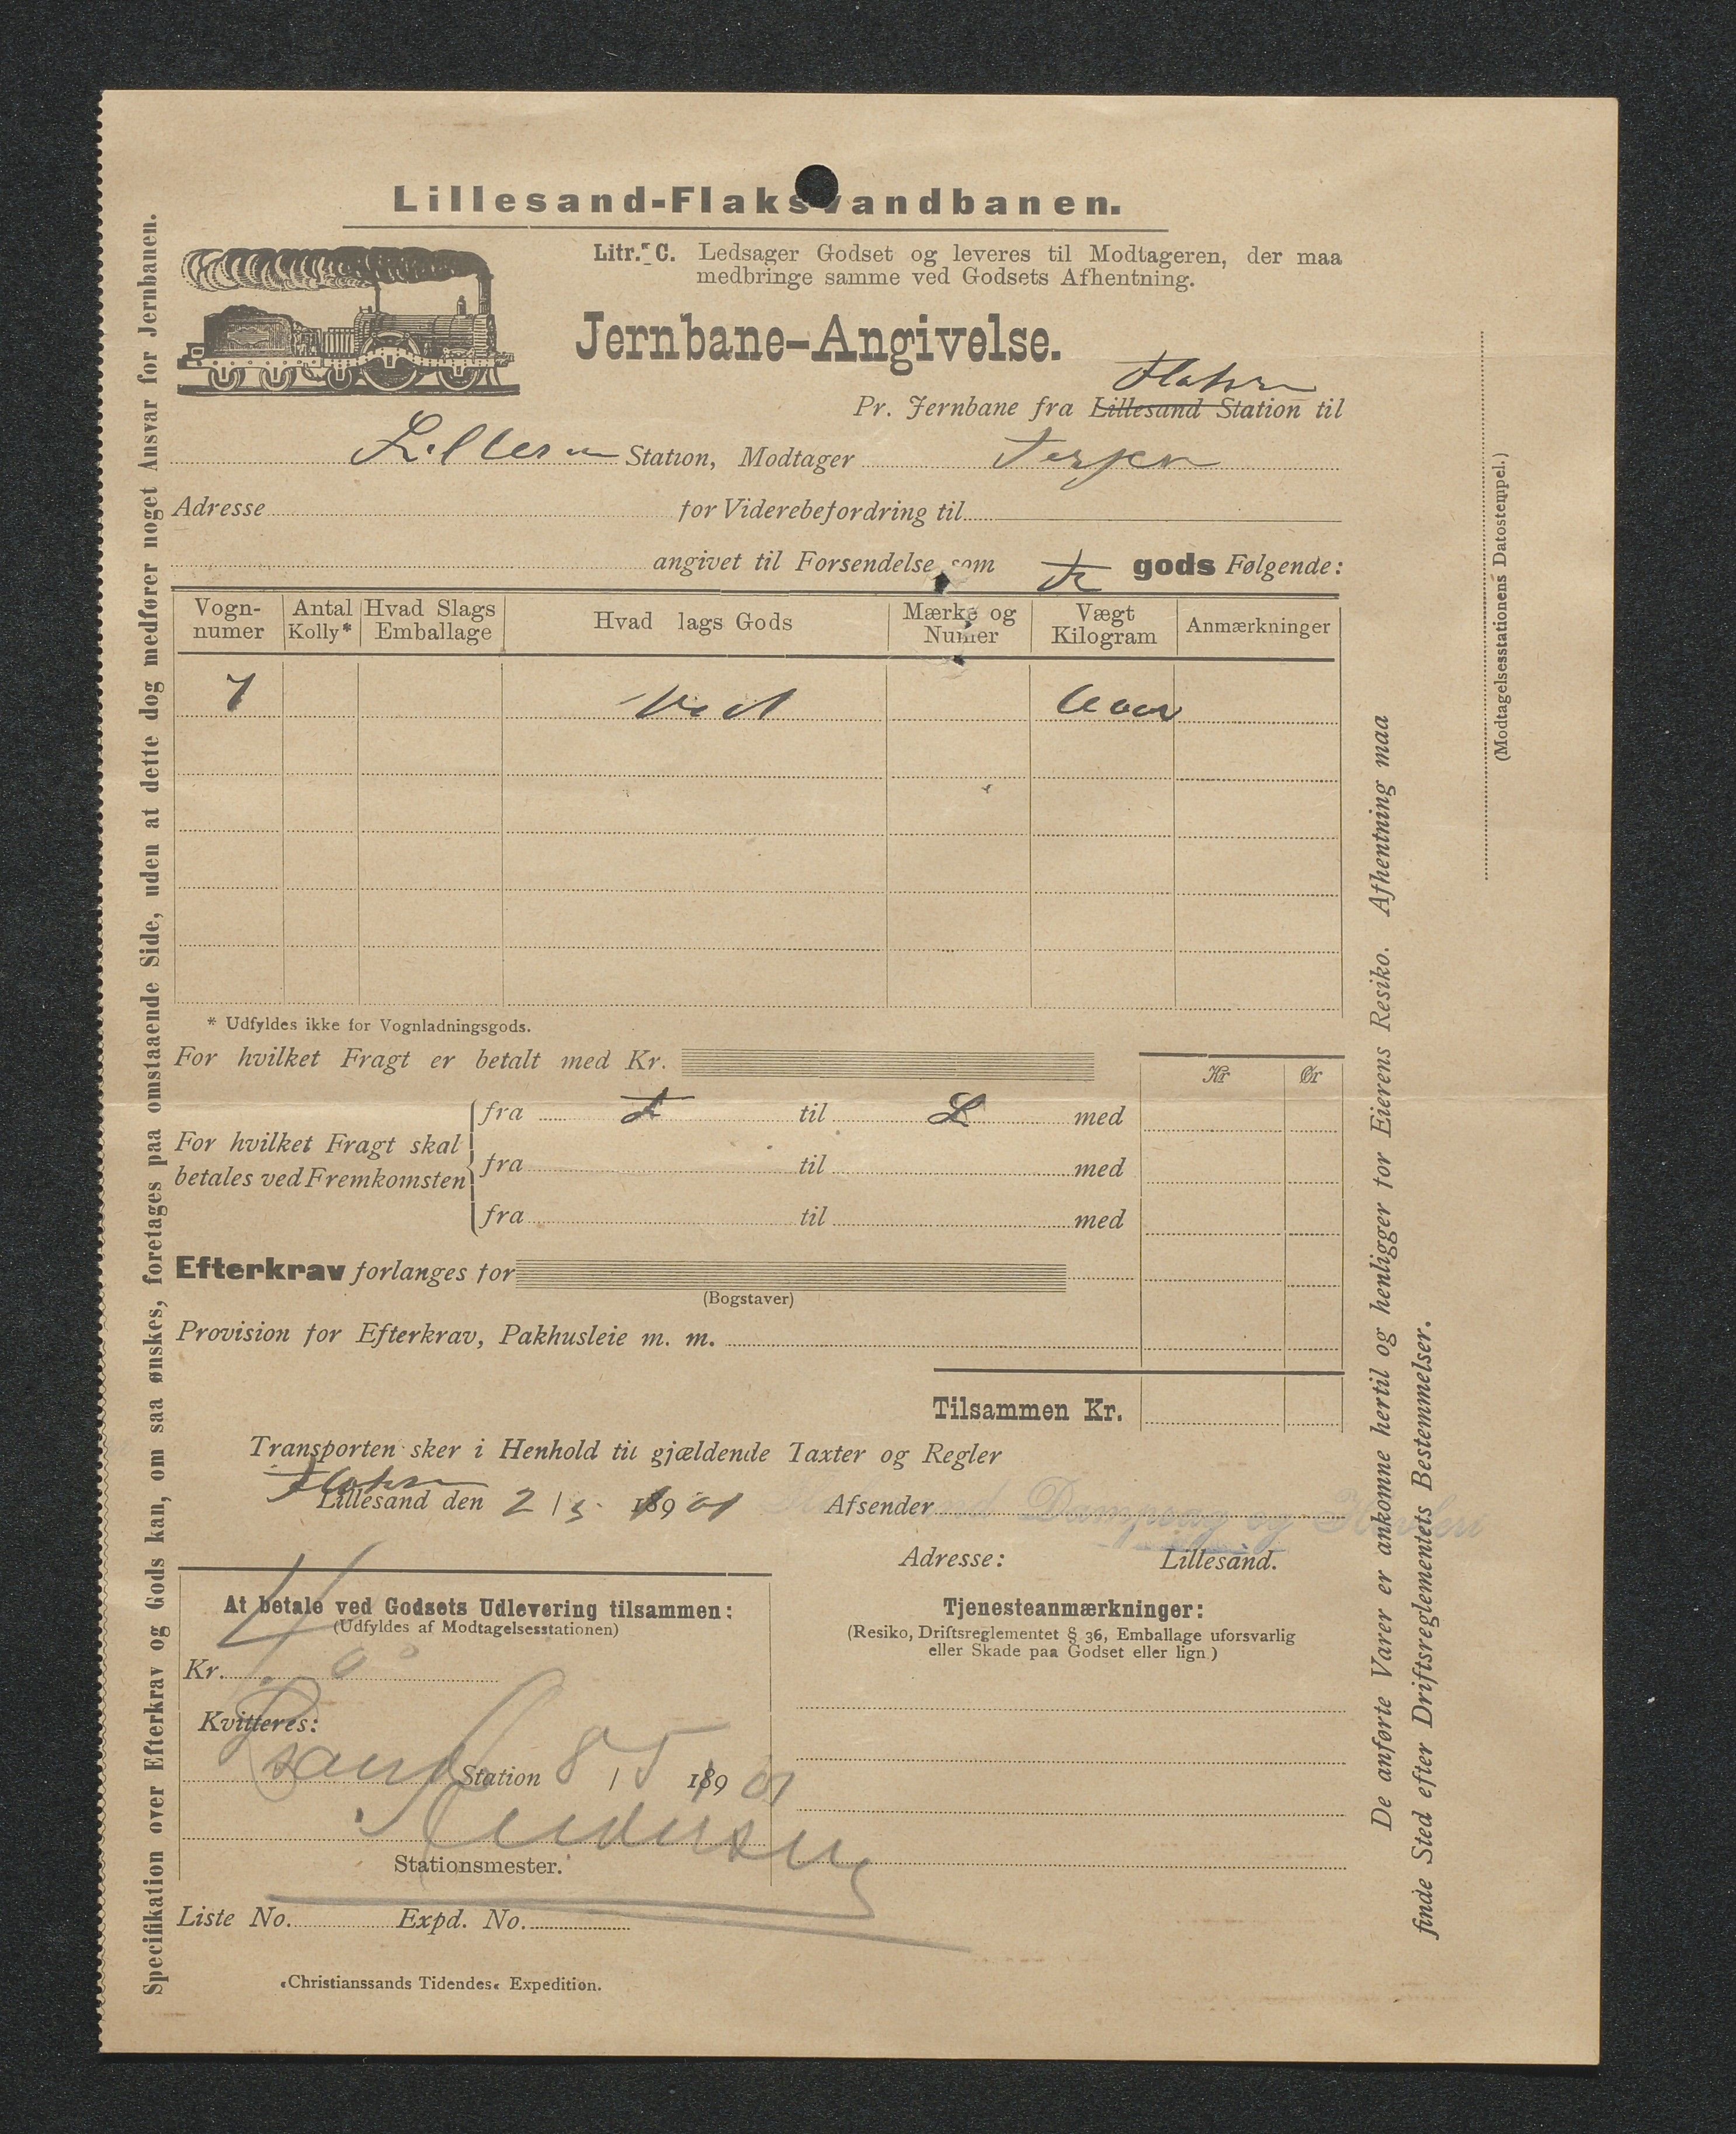 Lillesand-Flaksvandbanen.
Litr. C. Ledsager Godset og leveres til Modtageren, der maa
medbringe samme ved Godsets Afhentning.
Jernbane-Angivelse.
Pr. Jernbane fra Lillesand Station til
Station, Modtager
Adresse for Viderebefordring til
angivet til Forsendelse som gods Følgende:
Vogn-
numer
Antal
Kolly*
Hvad Slags
Emballage
Hvad lags Gods
Mærke og
Numer
Vægt
Kilogram
Anmærkninger
7 Ved
* Udfyldes ikke for Vognladningsgods.
For hvilket Fragt er betalt med Kr.
Kr Ør
For hvilket Fragt skal
betales ved Fremkomsten
fra F til L med
fra til med
fra til med
Efterkrav forlanges for
(Bogstaver)
Provision for Efterkrav, Pakhusleie m. m.
Tilsammen Kr.
Transporten sker i Henhold til gjældende Taxter og Regler
Lillesand den 2/5 189 01 Afsender Dampsag og Høvleri
Adresse: Lillesand.
At betale ved Godsets Udlevering tilsammen:
(Udfyldes af Modtagelsesstationen)
Kr.
Kvitteres:
Station 8/5 189 01
Stationsmester.
Tjenesteanmærkninger:
(Resiko, Driftsreglementet § 36, Emballage uforsvarlig
eller Skade paa Godset eller lign.)
Liste No. Expd. No.
«Christianssands Tidendes« Expedition.
Specifikation over Efterkrav og Gods kan, om saa ønskes, foretages paa omstaaende Side, uden at dette dog medfører noget Ansvar for Jernbanen.
De anførte Varer er ankomne hertil og henligger for Eierens Resiko. Afhentning maa
finde Sted efter Driftsreglementets Bestemmelser.
(Modtagelsesstationens Datostempel.)